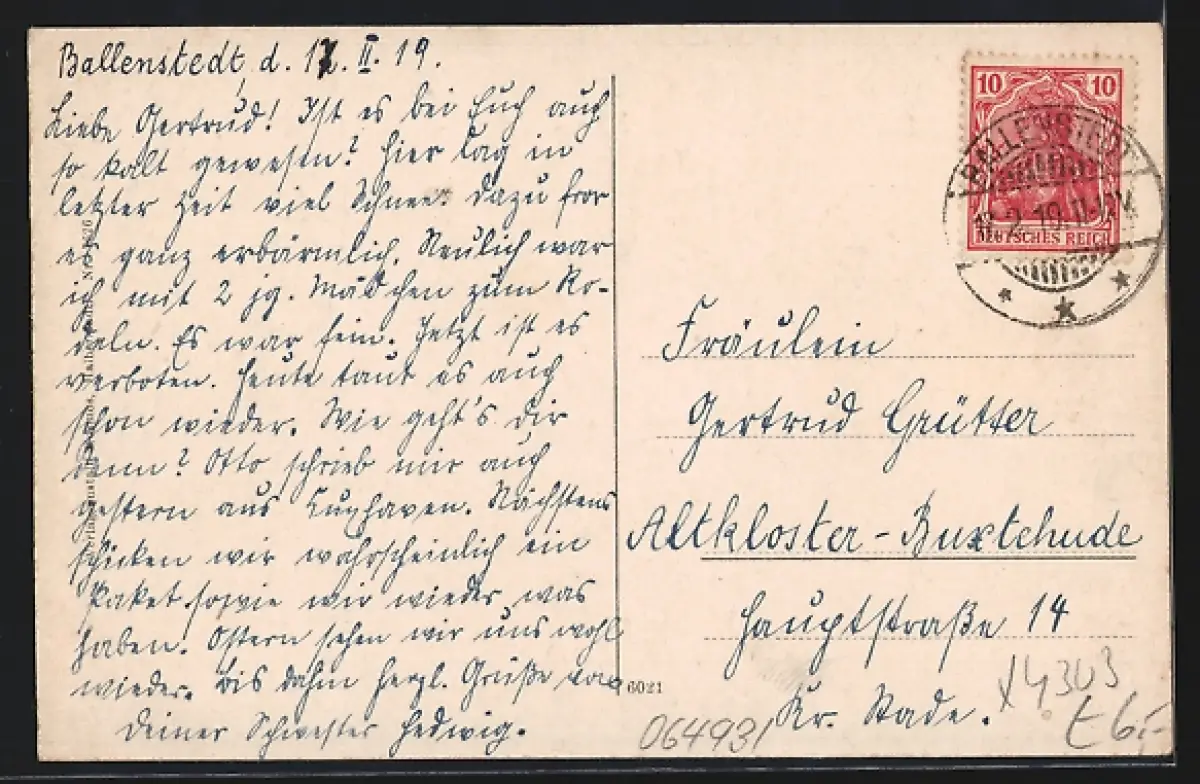 Ballenstedt, d. 17. II. 19.
Liebe Gertrud! Ist es bei Euch auch
so kalt gewesen? Hier lag in
letzter Zeit viel Schnee. Dazu fror
es ganz erbärmlich. Neulich war
ich mit 2 jg. Mädchen zum Ro-
deln. Es war fein. Jetzt ist es
verboten. Heute taut es auch
schon wieder. Wie geht's Dir
denn? Otto schrieb mir auch
gestern aus Cuxhaven. Nächstens
schicken wir wahrscheinlich ein
Paket sowie wir wieder was
haben. Ostern sehen wir uns wohl
wieder. Bis dahin herzl. Grüße von
Deiner Schwester Hedwig.
10 10
DEUTSCHES REICH
BALLENSTEDT
Fräulein
Gertrud Grütter
Altkloster-Buxtehude
Hauptstraße 14
Kr. Stade.
6021
064931